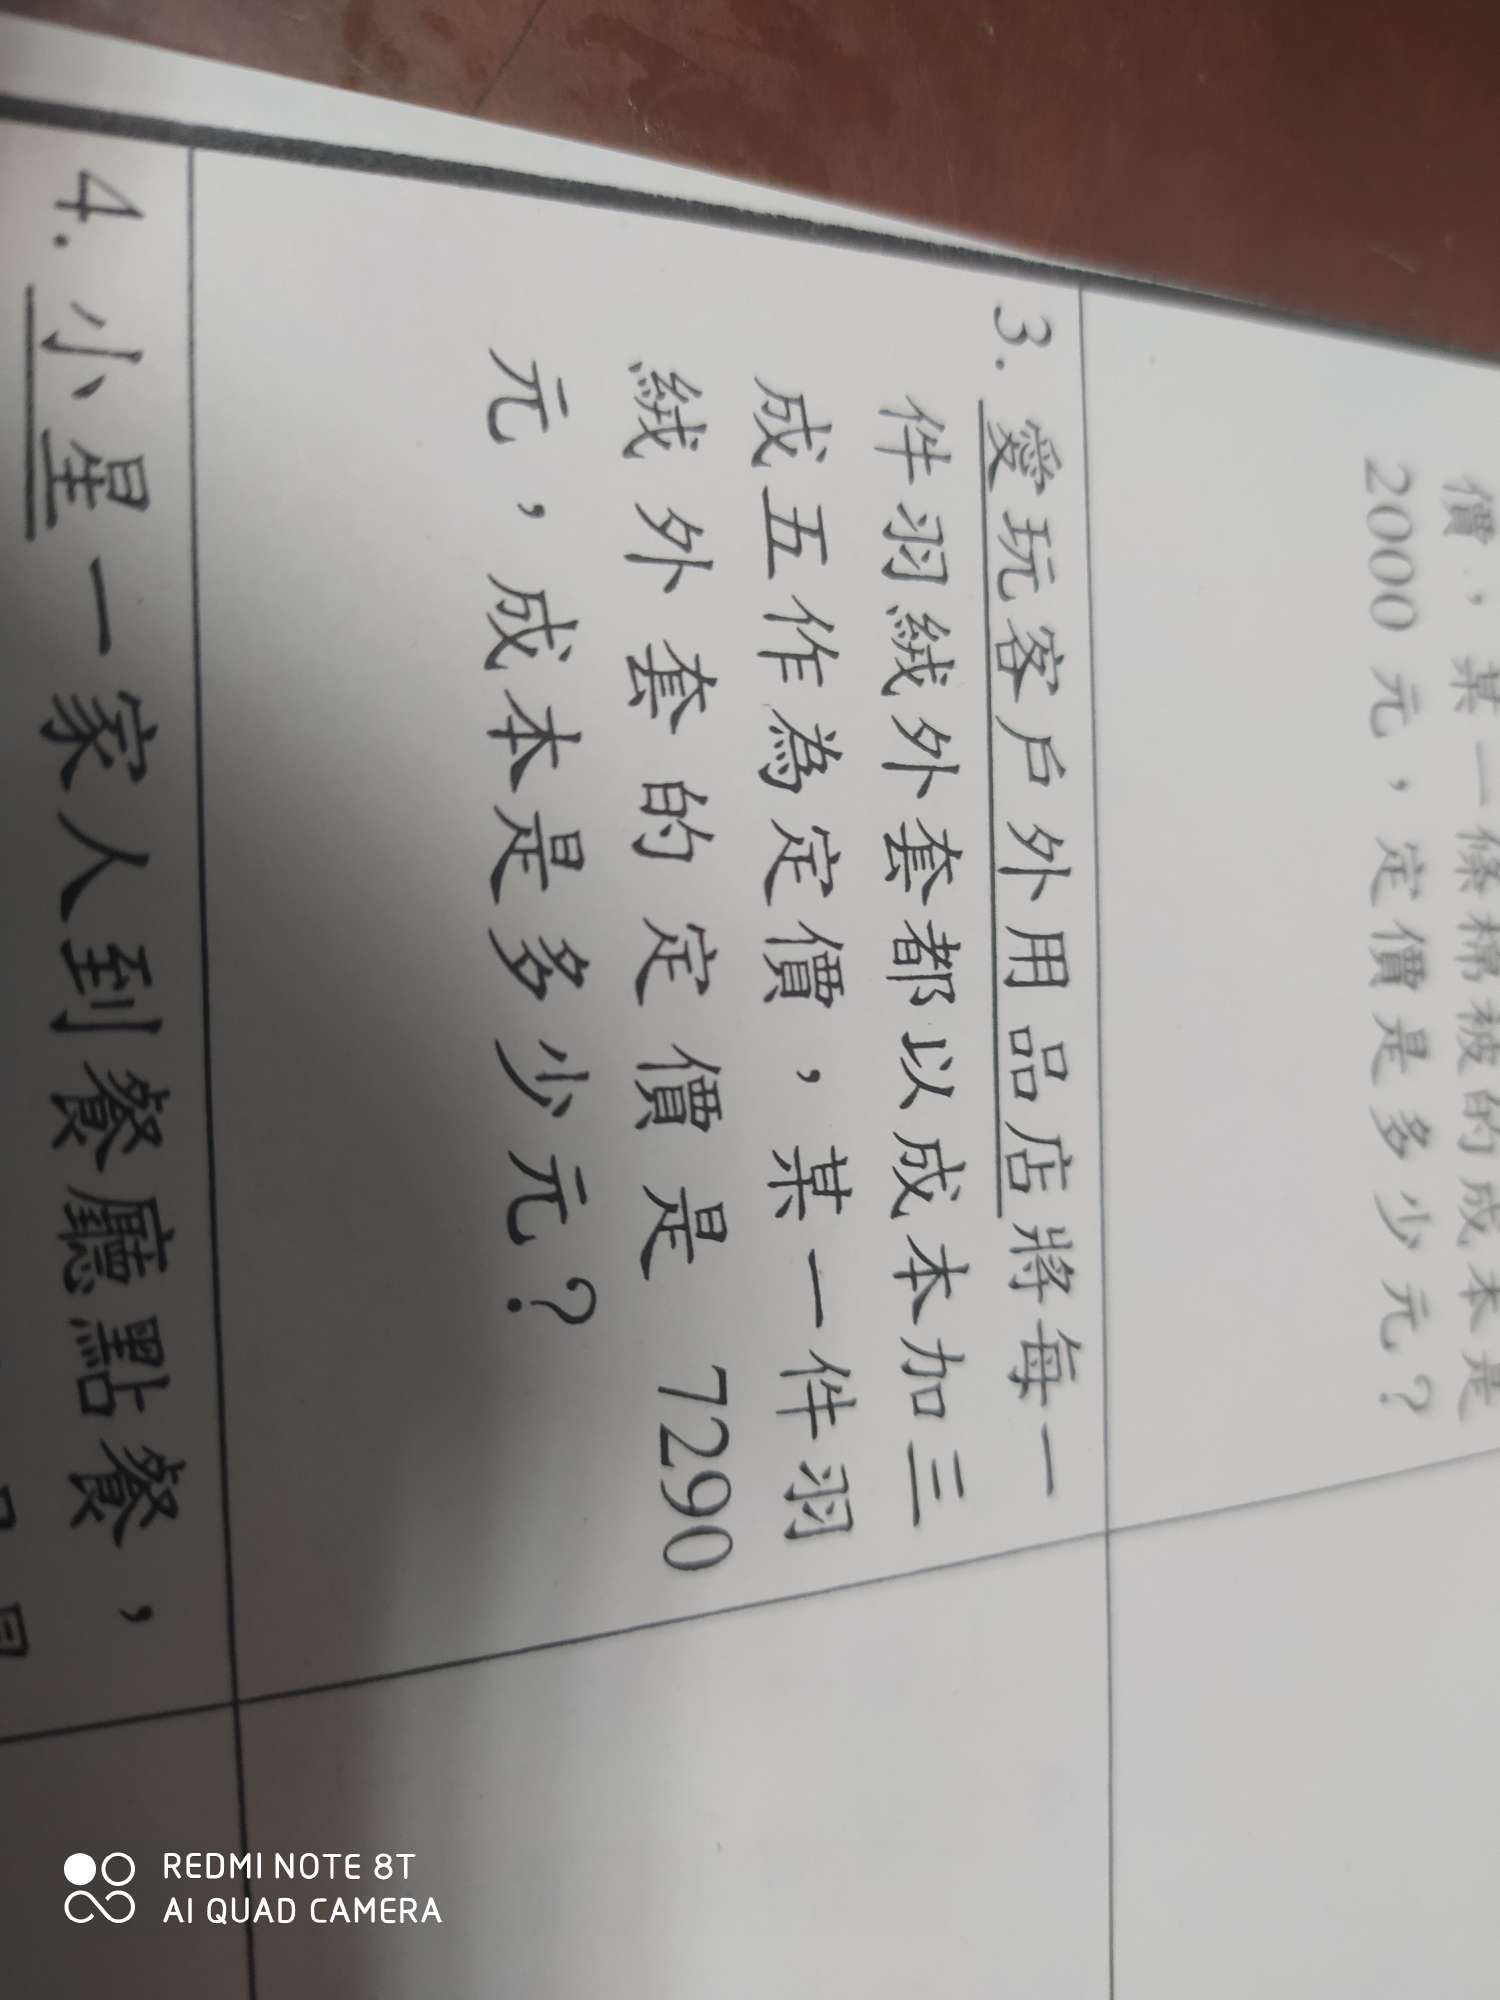 價，某一條棉被的成本是
2000 元，定價是多少元？
3. 愛玩客戶外用品店將每一
件羽絨外套都以成本加三
成五作為定價，某一件羽
絨外套的定價是 7290
元，成本是多少元？
4. 小星一家人到餐廳點餐，
REDMI NOTE 8T
AI QUAD CAMERA